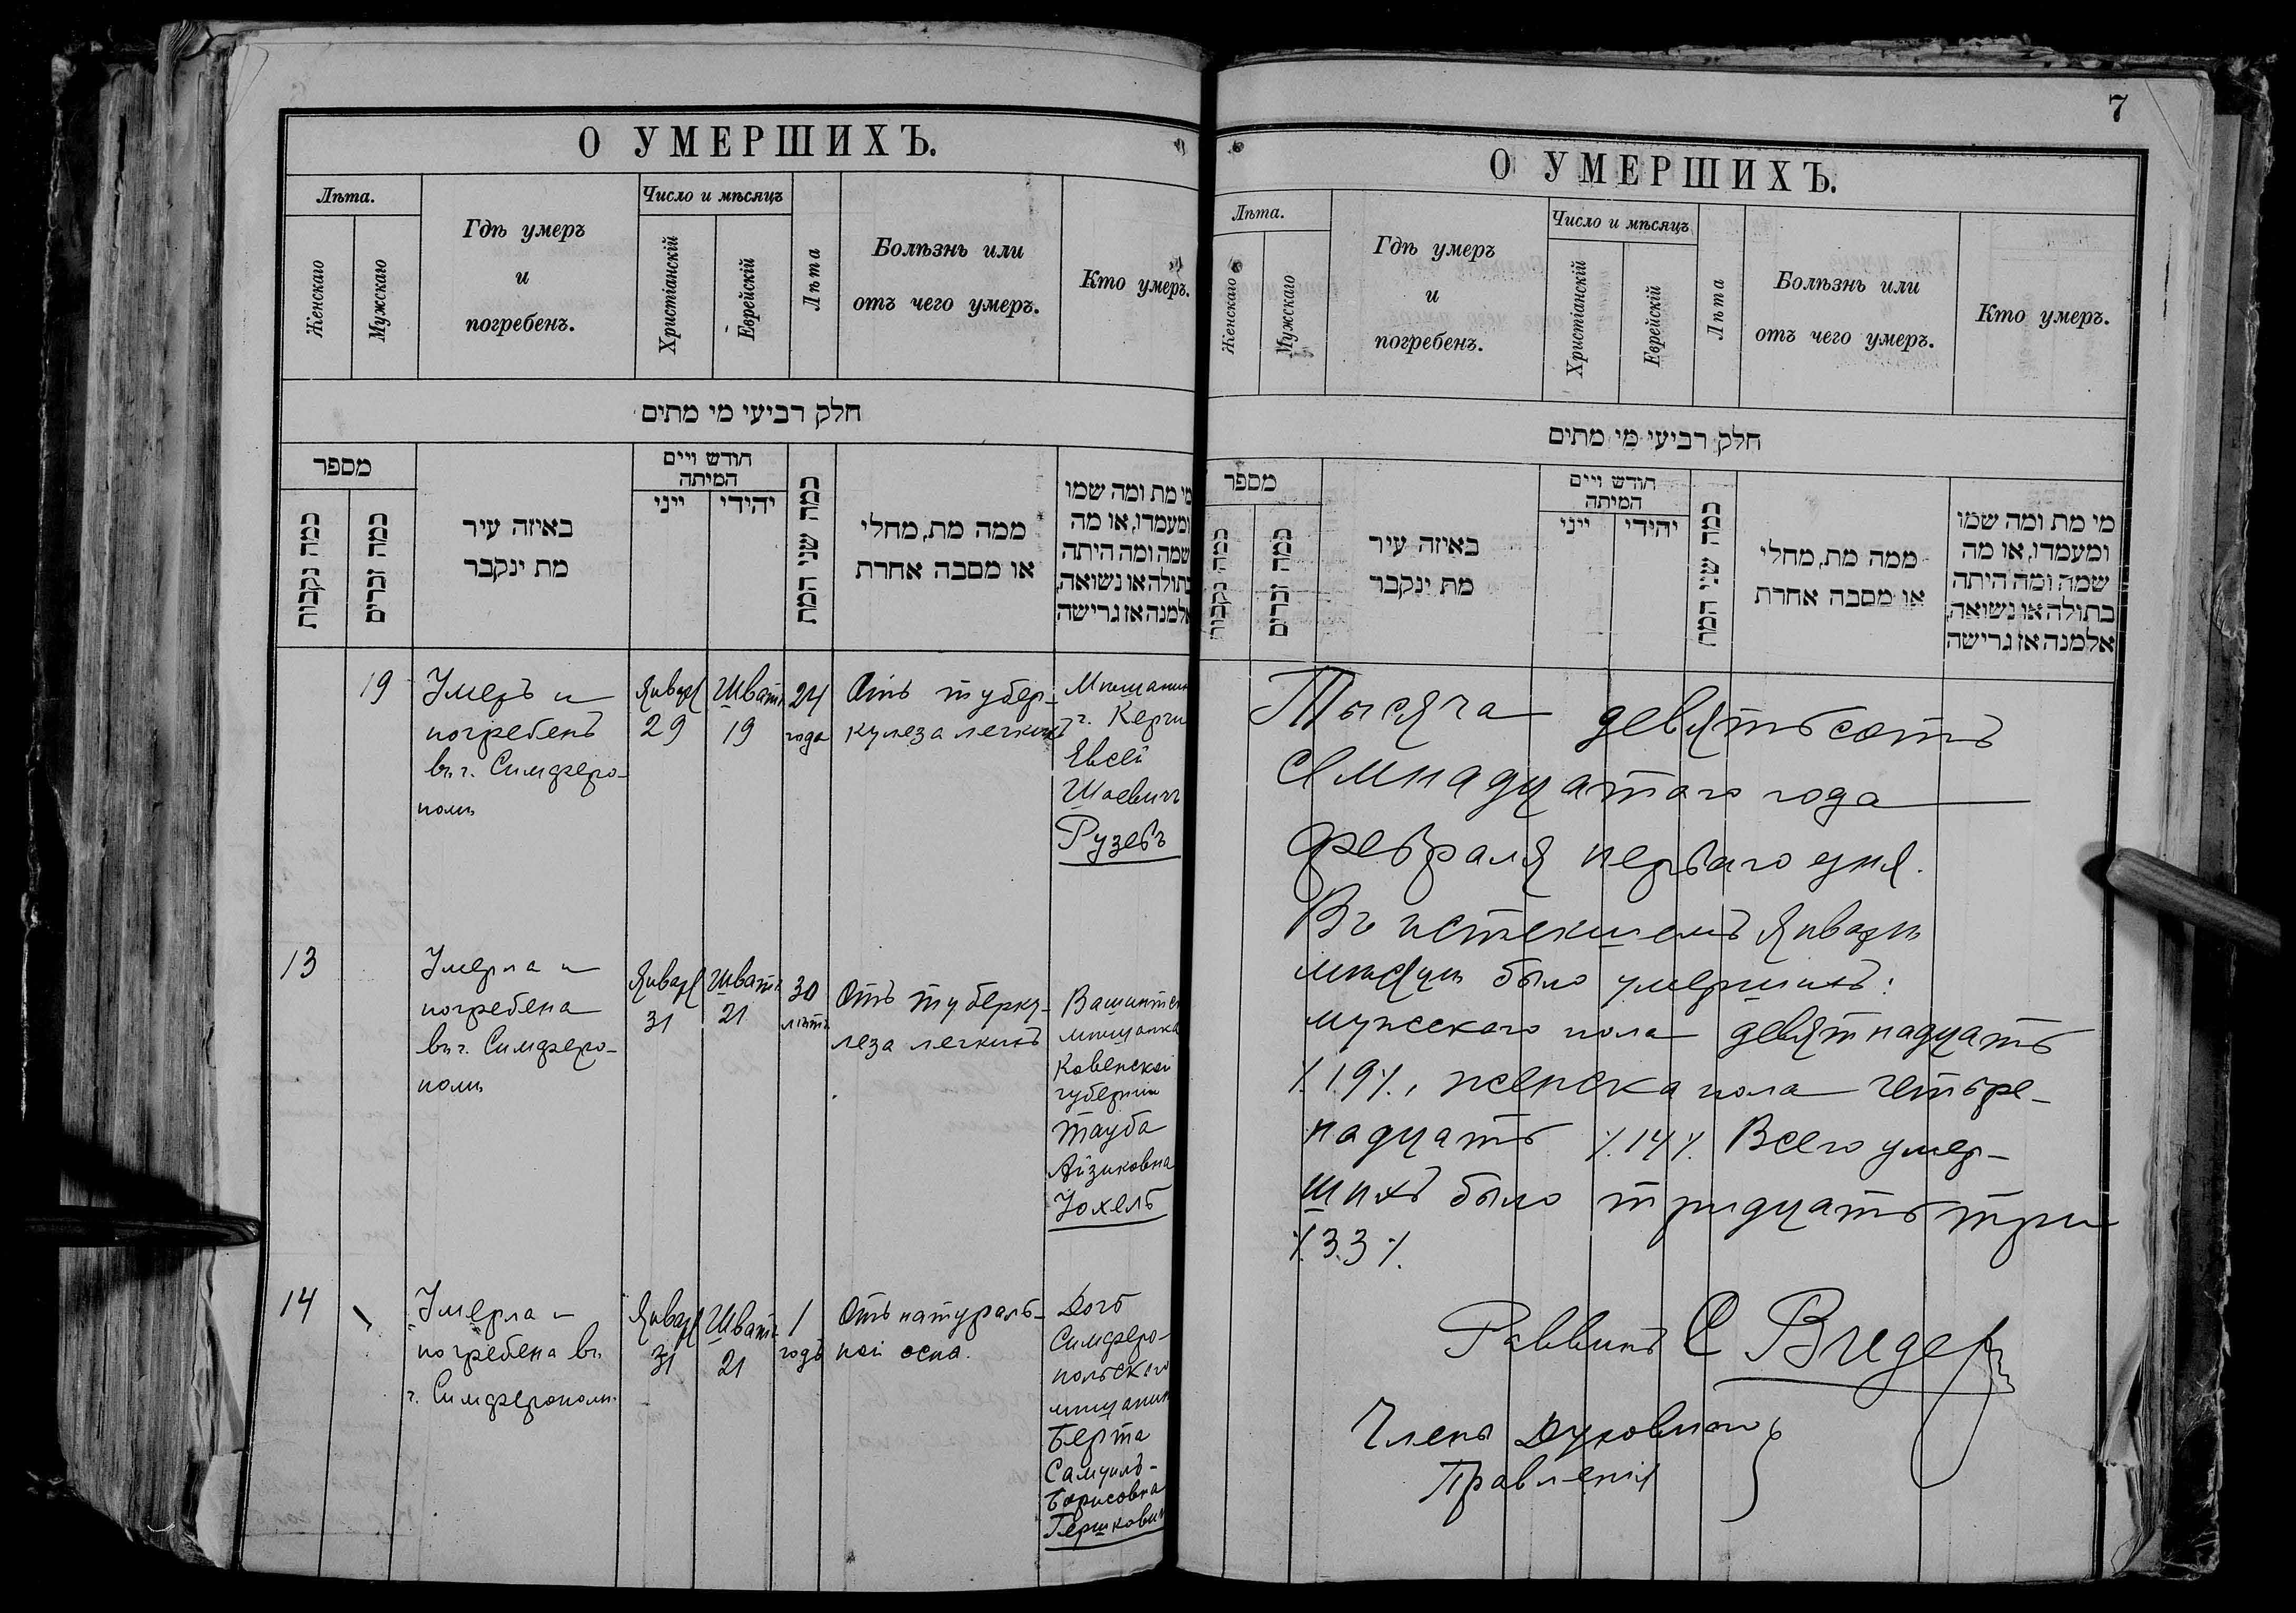 О УМЕРШИХЪ.
Лѣта.
Женскаго
Мужскаго
Гдѣ умеръ
и
погребенъ.
Число и мѣсяцъ
Христіанскій
Еврейскій
Лѣта
Болѣзнь или
отъ чего умеръ.
Кто умеръ.
חלק רביעי מי מתים
מספר
כמה נקבות
כמה זכרים
באיזה עיר
מת ינקבר
חודש ויים
המיתה
ייני
יהידי
כמה שני המת
ממה מת, מחלי
או מסבה אחרת
מי מת ומה שמו
ומעמדו, או מה
שמה ומה היתה
בתולה או נשואה,
אלמנה אז גרישה
19
Умеръ и
погребенъ
въ г. Симферо-
полѣ
Январ
29
Шватъ
19
24
года
Отъ тубер-
кулеза легкихъ
Мѣщанин
г. Керчи
Евсей
Шаевичъ
Рузевъ
13
Умерла и
погребена
въ г. Симферо-
полѣ
Январ
31
Шватъ
21
30
лѣтъ
Отъ туберку-
леза легкихъ
мѣщанка
Ковенской
губерніи
Тауба
Айзиковна
Іохель
14
Умерла и
погребена въ
г. Симферополѣ
Январ
31
Шватъ
21
1
годъ
Отъ натураль-
ной оспа.
Дочь
Симферо-
польскаго
мѣщанин
Берта
Самуилъ-
Борисовна
Гершкович
7
О УМЕРШИХЪ.
Лѣта.
Женскаго
Мужскаго
Гдѣ умеръ
и
погребенъ.
Число и мѣсяцъ
Христіанскій
Еврейскій
Лѣта
Болѣзнь или
отъ чего умеръ.
Кто умеръ.
חלק רביעי מי מתים
מספר
כמה נקבות
כמה זכרים
באיזה עיר
מת ינקבר
חודש ויים
המיתה
ייני
יהידי
כמה שני המת
ממה מת, מחלי
או מסבה אחרת
מי מת ומה שמו
ומעמדו, או מה
שמה ומה היתה
בתולה או נשואה,
אלמנה אז גרישה
Тысяча девятьсотъ
семнадцатого года
февраля перваго дня.
Въ истекшемъ Январѣ
мѣсяцѣ было умершихъ:
мужского пола девятнадцать
٪19٪, женска пола четыре-
надцать ٪14٪ Всего умер-
шихъ было тридцать три
٪33٪.
Раввинъ С Видер
Члены Духовнаго
Правленія